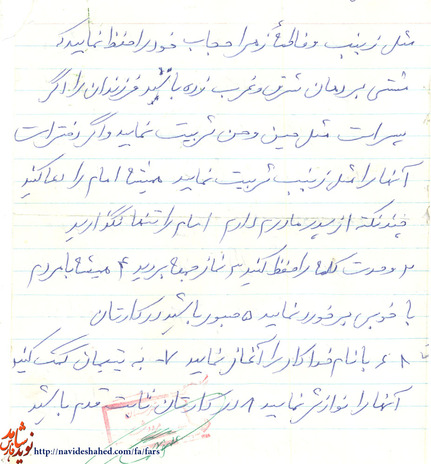 مثل زینب و فاطمهٔ زهرا حجاب خود را حفظ نمایید که
مشتی بر دهان شرق و غرب زده باشید فرزندان را اگر
پسر است مثل حسین و حسن تربیت نماید و اگر دختر است
آنها را مثل زینب تربیت نماید همیشه امام را دعا کنید
چند نکته از پدر مادرم دارم امام را تنها نگذارید
۲ وحدت کلمه را حفظ کنید ۳ نماز جمعه بروید ۴ همیشه با مردم
با خوبی برخورد نمایید ۵ صبور باشید در کارتان
۶ با نام خدا کار را آغاز نمایید ۷- به یتیمان کمک کنید
آنها را نوازش نمایید ۸ در کارتان ثابت قدم باشید
نوید شاهد فارس
http://navideshahed.com/fa/fars